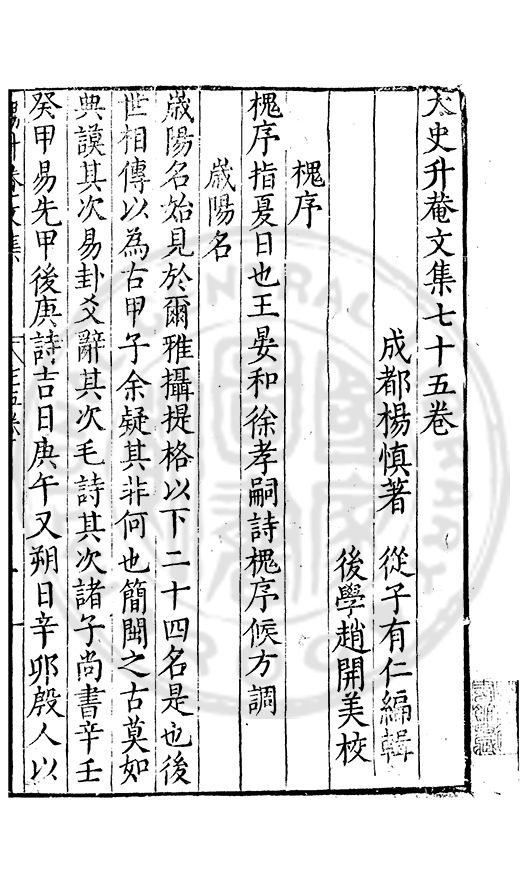 太史升菴文集七十五卷
成都楊慎著 從子有仁編輯
後學趙開美校
槐序
槐序指夏日也王晏和徐孝嗣詩槐序候方調
歲陽名
歲陽名始見於爾雅攝提格以下二十四名是也後
世相傳以為古甲子余疑其非何也簡閱之古莫如
典謨其次易卦爻辭其次毛詩其次諸子尚書辛壬
癸甲易先甲後庚詩吉日庚午又朔日辛卯殷人以